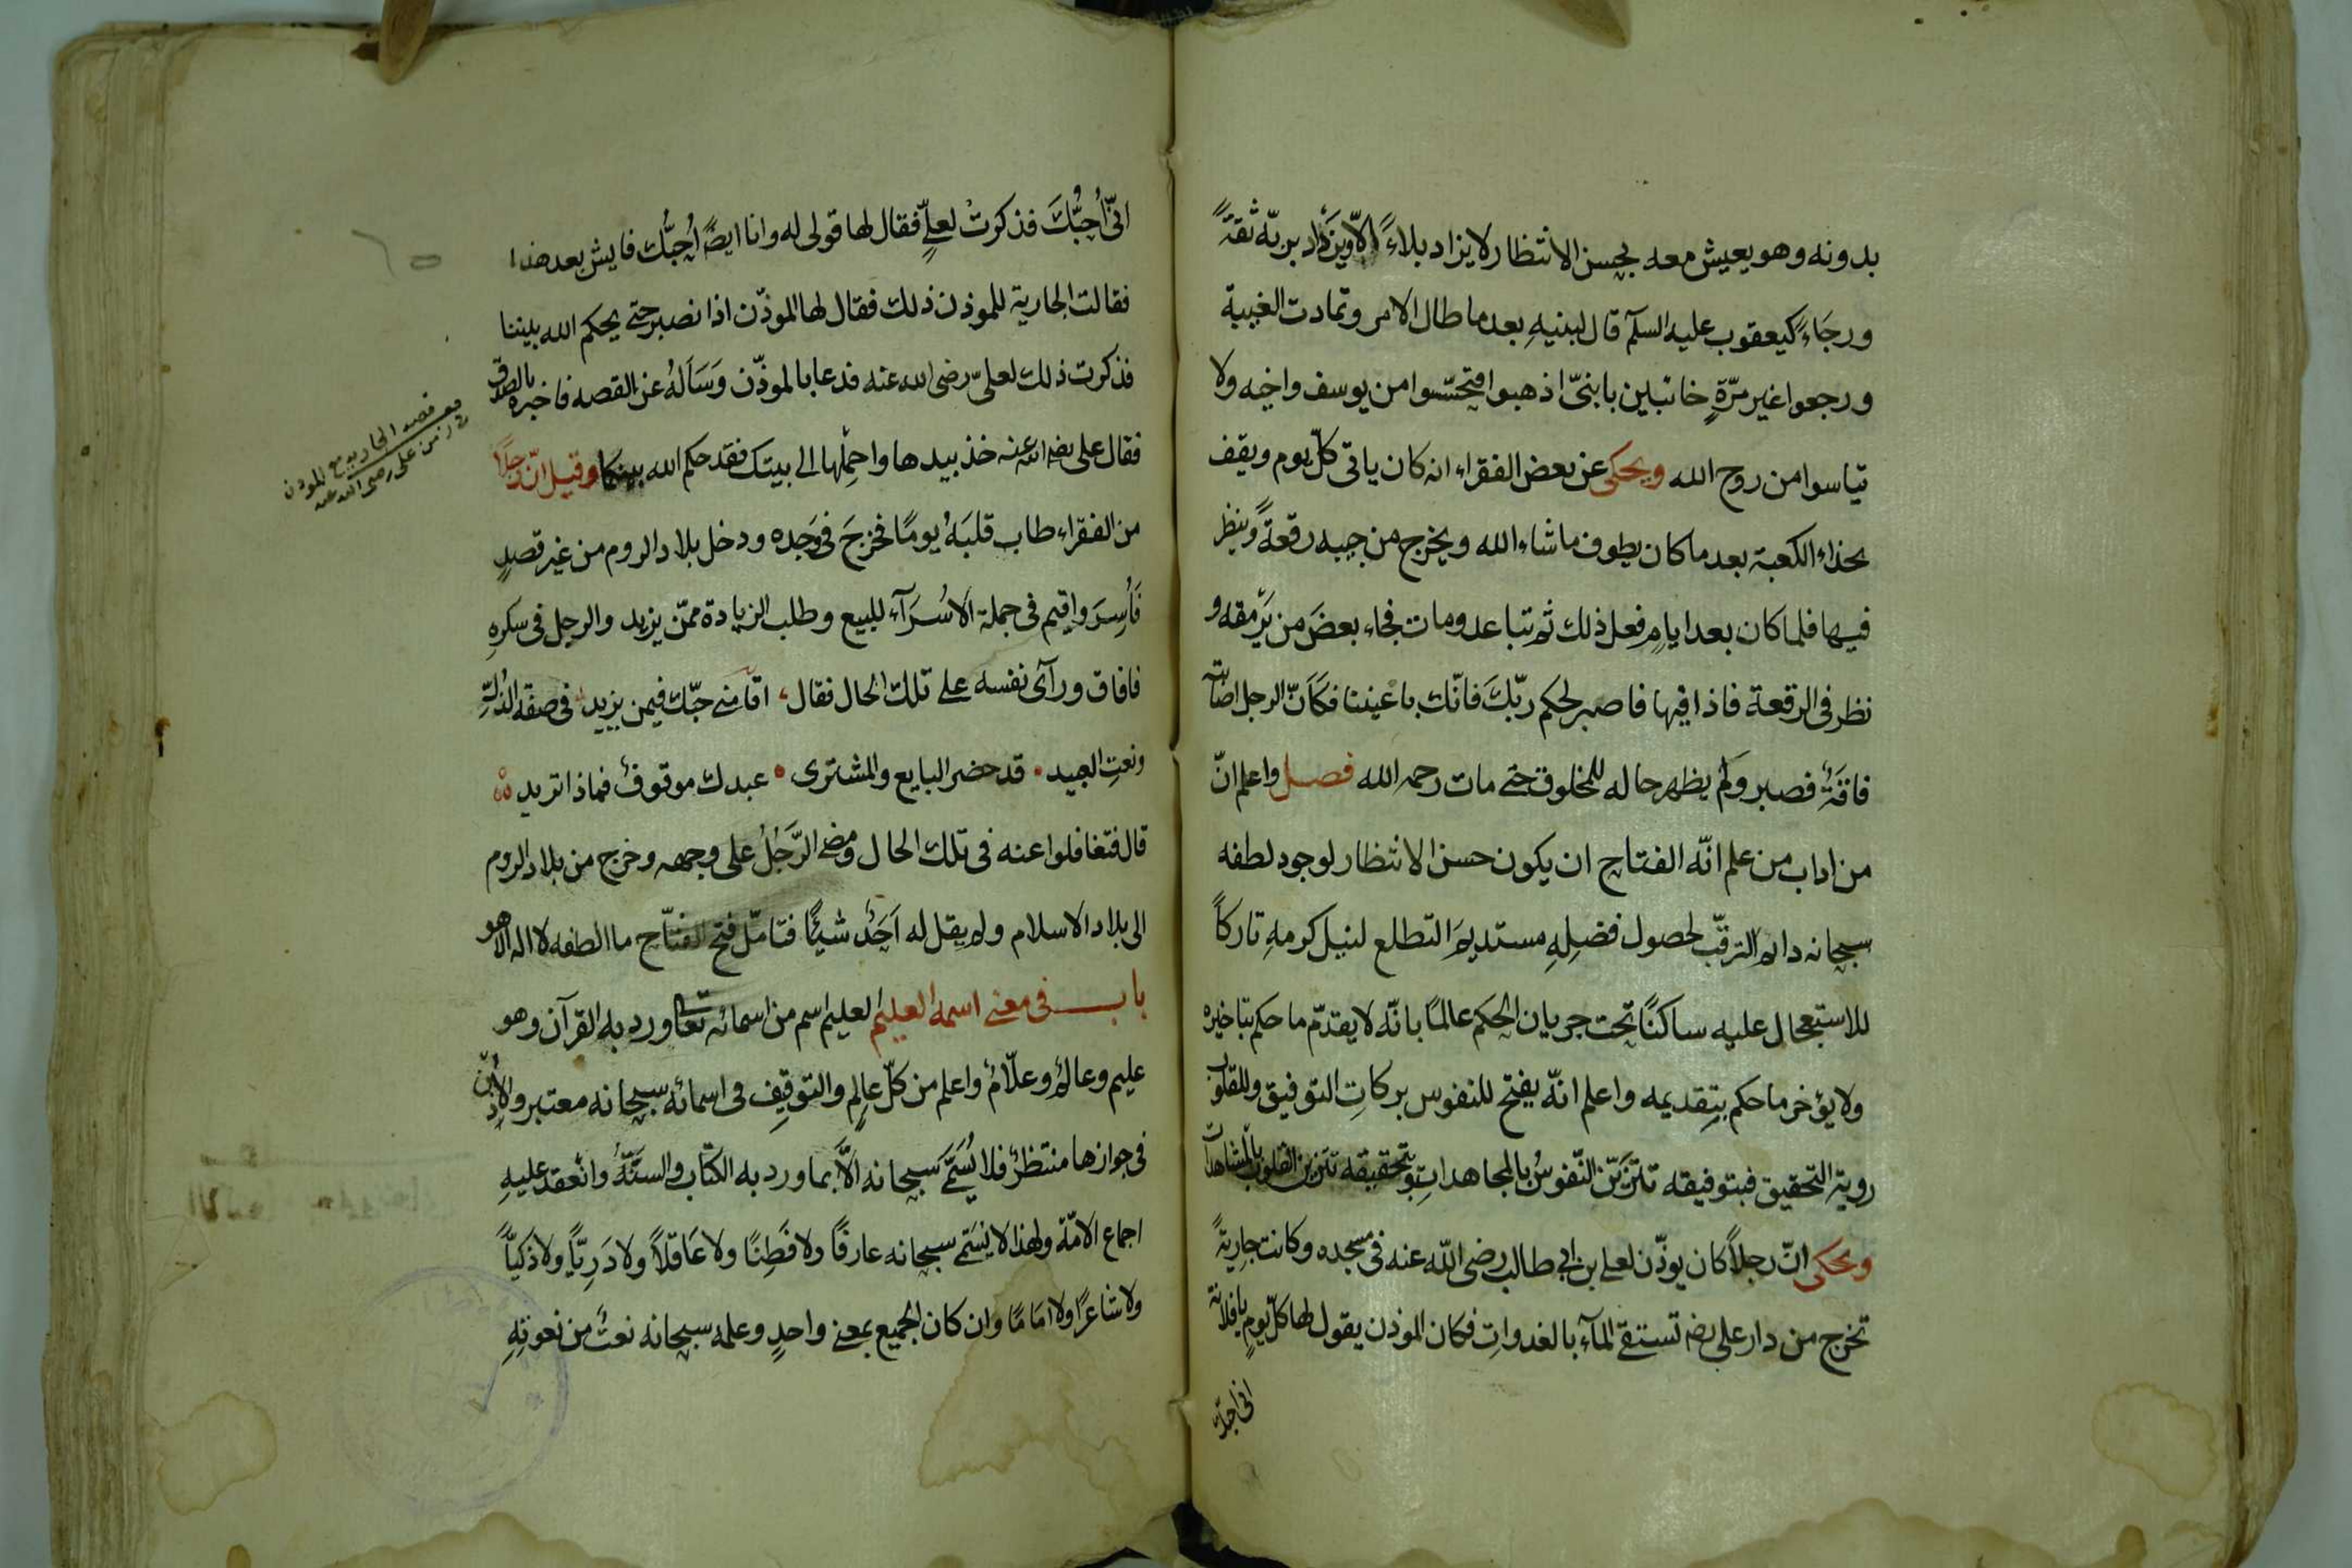 بدونه وهو يعيش معه بحسن الانتظار لا يزاد بلاءً الّا ويَزْداد بربّه ثقةً
ورجَاءً كيعقوب عليه السلم قال لبنيهِ بعد ما طال الامر وتمادت الغيبة
ورجعوا غير مرّةٍ خائبين يا بنىّ اذهبوا فتحسّسوا من يوسف واخيه ولا
تياسوا من روح الله ويحكى عن بعض الفقراء انه كان ياتى كلّ يوم ويقف
بحذاء الكعبة بعد ما كان يطوف ما شاء الله ويخرج من جيبه رقعةً وينظر
فيها فلما كان بعد ايامٍ فعل ذلك ثم تباعد ومات فجاء بعضَ من يَرْمقه و
نظر فى الرقعة فاذا فيها فاصبر لحكم ربّكَ فانّك باعيننا فكَانّ الرجل اصابته
فاقَةٌ فصبر ولم يظهر حاله للمخلوق حتى مات رحمه الله فصل واعلم انّ
من اداب من علم انّه الفتاح ان يكون حسن الانتظار لوجود لطفه
سبحانه دائم الترقّب لحصول فضلِهِ مستديمَ التطلع لنيل كرمهِ تاركاً
للاستعجال عليه ساكنًا تحت جريان الحكم عالمًا بانّه لا يقدّم ما حكم بتاخيره
ولا يؤخر ما حكم بتقديمه واعلم انّه يفتح للنفوس بركاتِ التوفيق وللقلوب
روية التحقيق فبتوفيقه تتزَيّن النّفوسُ بالمجاهداتِ وبتحقيقه تتزين القلوب بالمشاهدات
ويحكى انّ رجلاً كان يوذّن لعلى بن ابى طالب رضى الله عنه فى مسجده وكانت جاريةً
تخرج من دار على رضه تستقى المآء بالغدواتِ فكان الموذن يقول لها كلّ يومٍ يا فلانة
انى احبّك
انّى اُحِبُّكَ فذكرتْ لعلىٍّ فقال لها قولى له وانا ايضًا اُحِبُّك فايش بعد هذا
فقالت الجارية للموذن ذلك فقال لها الموذّن اذا نصبر حتى يحكم الله بيننا
فذكرت ذلك لعلىّ رضى الله عنه فدعا بالموذّن وسَاَلهُ عن القصه فاخبره بالصدق
فقال على رضى الله عنه خذ بيدها واحمِلْها الى بيتك فقد حكم الله بينكما وقيل انّ رجلاً
من الفقراء طاب قلبَهُ يومًا فخرجَ فى وَجْده ودخل بلاد الروم من غير قصدٍ
فَاُسِرَ واقيم فى جملة الاسُرَآء للبيع وطلب الزيادة ممّن يزيد والرجل فى سكرهِ
فافاق ورآى نفسه على تلك الحال فقال اقامنى حبّك فيمن يزيد فى صفة الذلّةِ
ونعتِ العبيد قد حضر البايع والمشترى عبدك موقوفٌ فماذا تريد
قال فتغافلوا عنه فى تلك الحال ومضى الرَّجُلُ على وجهه وخرج من بلاد الروم
الى بلاد الاسلام ولم يقل له اَحَدٌ شيئًا فتامّل فتح الفتّاح ما الطفه لا اله الا هو
باب فى معنى اسمه العليم العليم اسم من اسمائه تعالى ورد به القرآن وهو
عليم وعالمٌ وعلّامٌ واعلم من كلّ عالِمٍ والتوقيفِ فى اسمائه سبحانه معتبر والاِذْن
فى جوازها منتظرٌ فلا يُسَمَّى سبحانه الَّا بما ورد به الكتاب والسنّةُ وانعقد عليهِ
اجماع الامّة ولهذا لا يسَمّى سبحانه عارفًا ولا فَطِنًا ولا عَاقلاً ولا دَرِيًّا ولا ذكيًّا
ولا شاعرًا ولا امَامًا وان كان الجميع بمعنى واحدٍ وعلمه سبحانه نعتٌ من نعوتِهِ
قصه الجاريه مع الموذن
فى زمن على رضى الله عنه